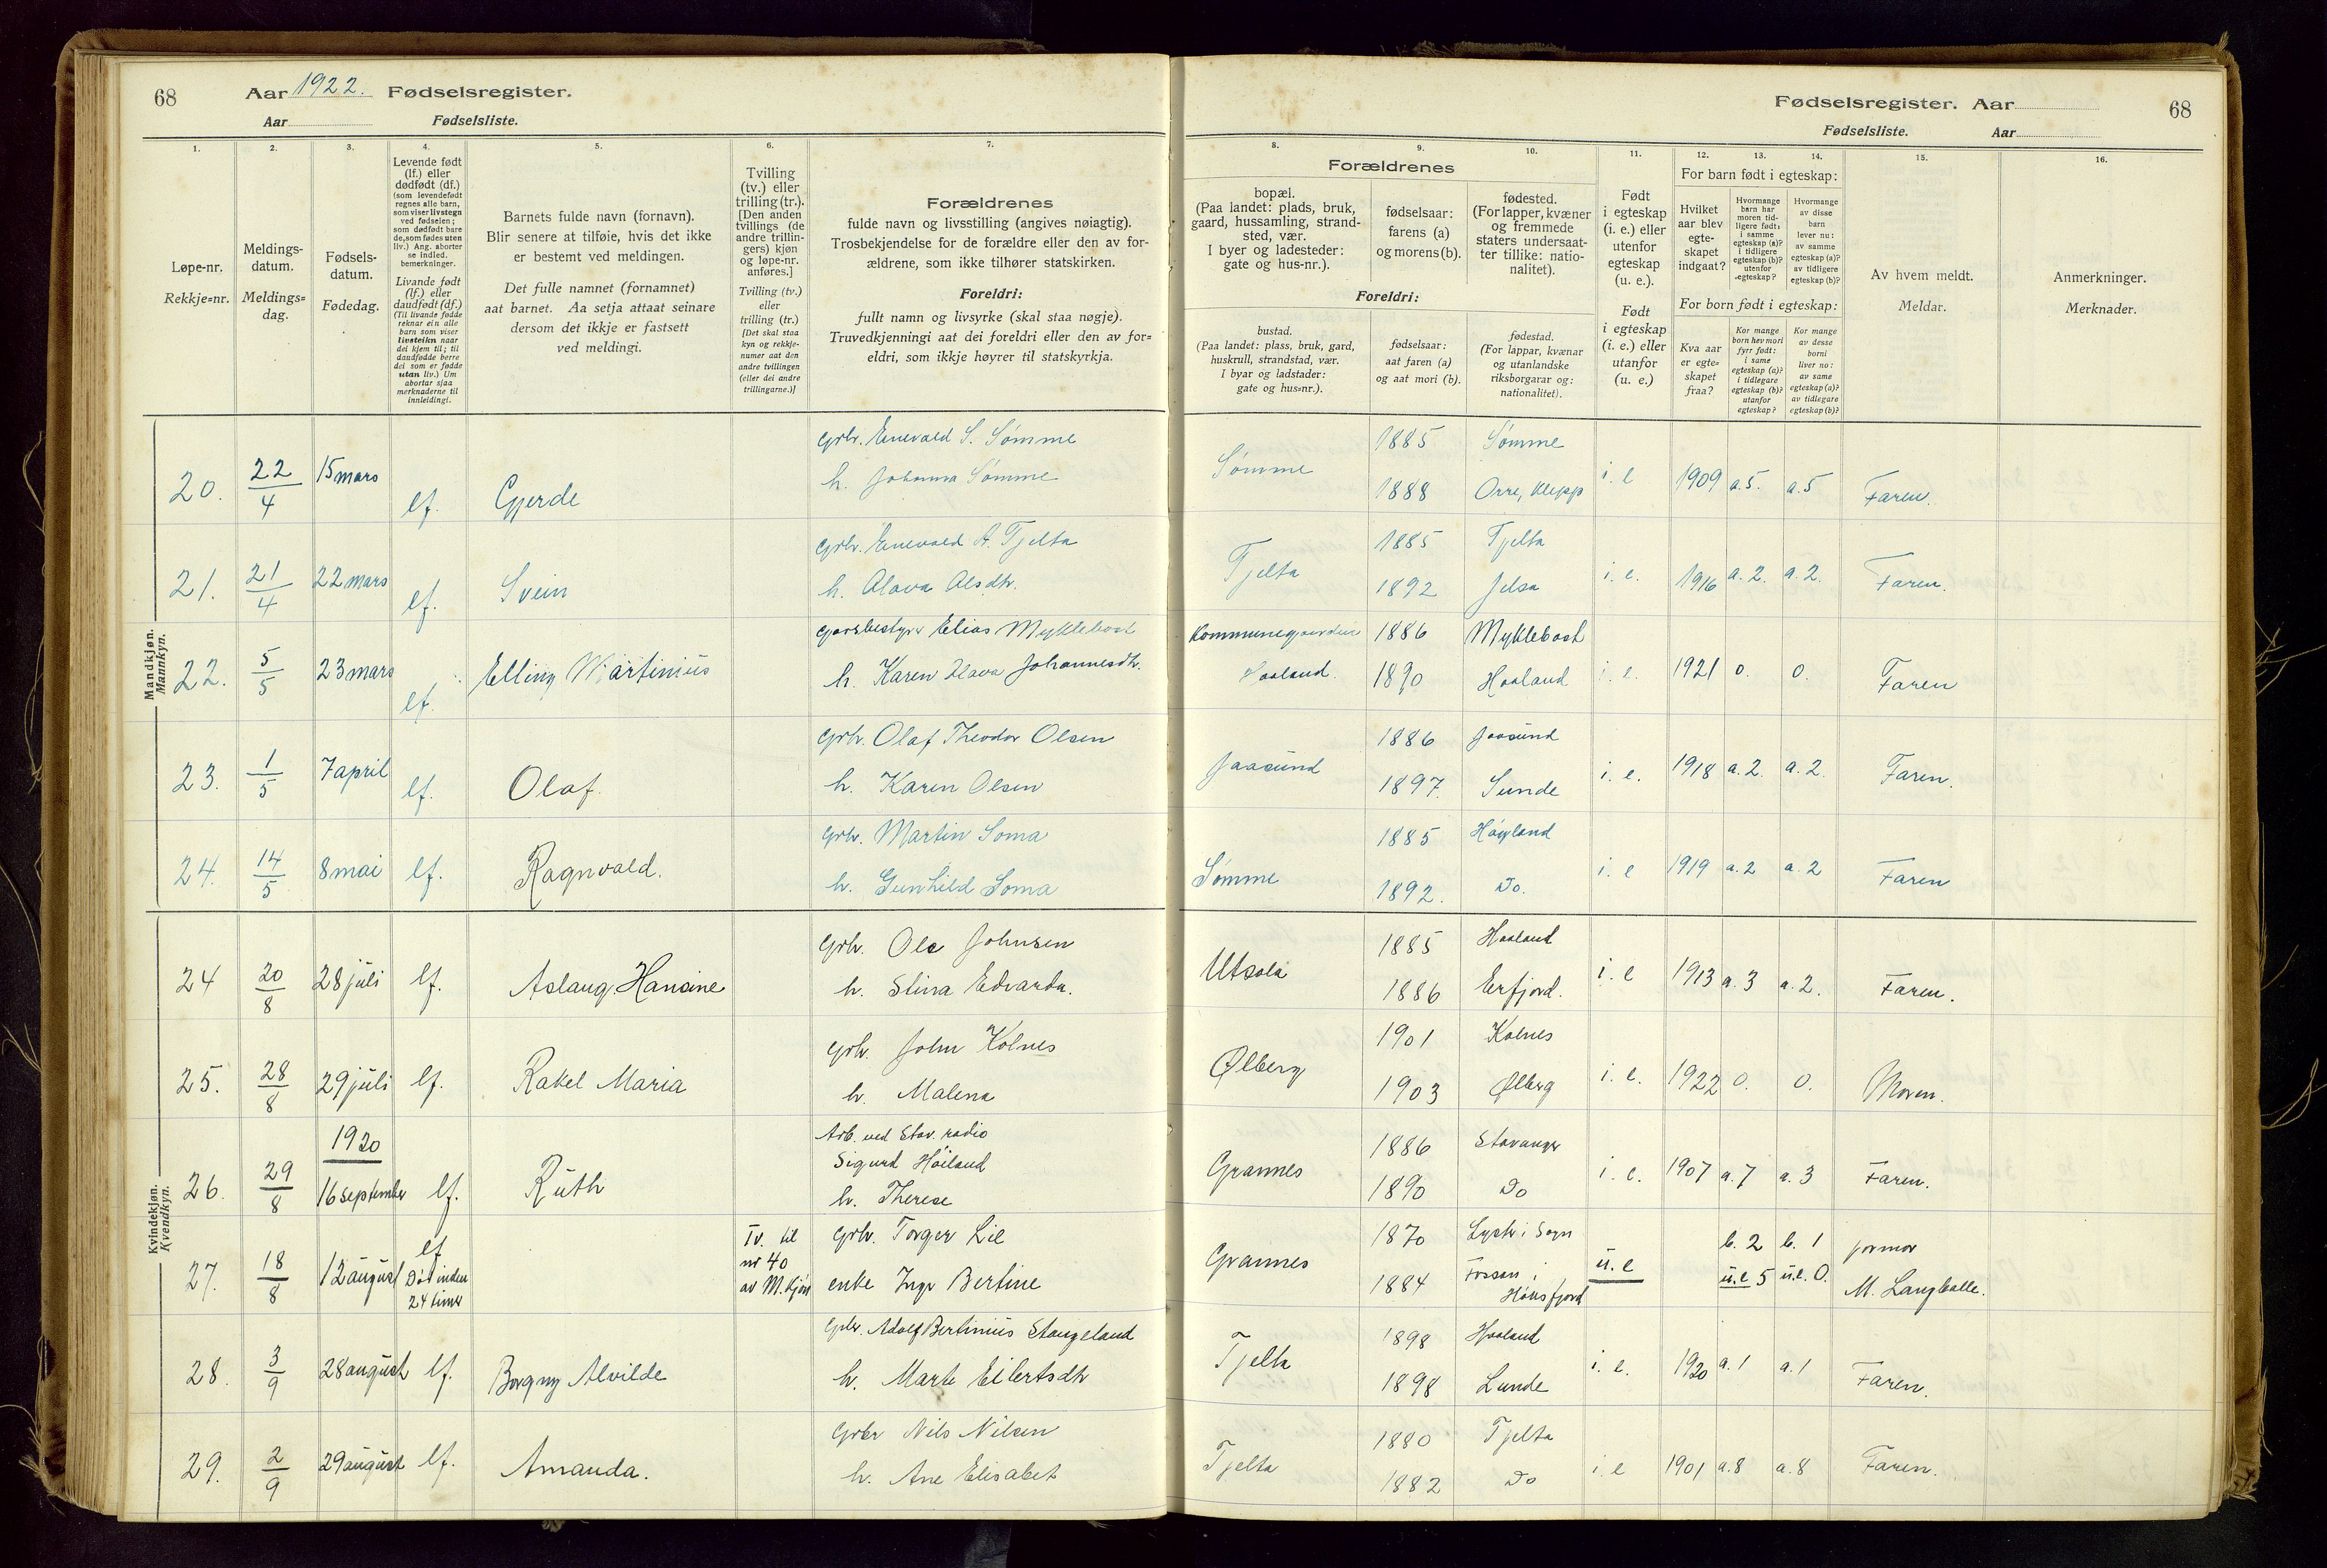 68
Aar 1922. Fødselsregister.
Aar Fødselsliste.
1.
Løpe-nr.
Rekkje=nr.
2.
Meldings-
datum.
Meldings=
dag.
3.
Fødsels-
datum.
Fødedag.
4.
Levende født
(lf.) eller
dødfødt (df.)
(som levendefødt
regnes alle barn,
som viser livstegn
ved fødselen;
som dødfødt bare
de, som fødes uten
liv.) Ang. aborter
se indled.
bemerkninger.
Livande født
(lf.) eller
daudfødt (df.)
(Til livande fødde
reknar ein alle
barn som viser
livsteikn naar
dei kjem til; til
daudfødde berre
dei som er fødde
utan liv.) Um
abortar sjaa
merknaderne til
innleidingi.
5.
Barnets fulde navn (fornavn).
Blir senere at tilføie, hvis det ikke
er bestemt ved meldingen.
Det fulle namnet (fornamnet)
aat barnet. Aa setja attaat seinare
dersom det ikkje er fastsett
ved meldingi.
6.
Tvilling
(tv.) eller
trilling (tr.).
[Den anden
tvillings (de
andre trillin-
gers) kjøn
og løpe-nr.
anføres.]
Tvilling (tv.)
eller
trilling (tr.)
[Det skal staa
kyn og rekkje-
numer aat den
andre tvillingen
(eller dei andre
trillingarne.)]
7.
Forældrenes
fulde navn og livsstilling (angives nøiagtig).
Trosbekjendelse for de forældre eller den av for-
ældrene, som ikke tilhører statskirken.
Foreldri:
fullt namn og livsyrke (skal staa nøgje).
Truvedkjenningi aat dei foreldri eller den av for=
eldri, som ikkje høyrer til statskyrkja.
Fødselsregister. Aar
68
Fødselsliste. Aar
8.
Forældrenes
bopæl.
(Paa landet: plads, bruk,
gaard, hussamling, strand-
sted, vær.
I byer og ladesteder:
gate og hus-nr.).
Foreldri:
bustad.
(Paa landet: plass, bruk, gard,
huskrull, strandstad, vær.
I byar og ladstader:
gate og hus=nr.).
9.
fødselsaar:
farens (a)
og morens (b).
fødselsaar:
aat faren (a)
og aat mori (b).
10.
fødested.
(For lapper, kvæner
og fremmede
staters undersaat-
ter tillike: natio-
nalitet).
fødestad.
(For lappar, kvænar
og utanlandske
riksborgarar og:
nationalitet).
11.
Født
i egteskap
(i. e.) eller
utenfor
egteskap
(u. e.).
Født
i egteskap
(i. e.) eller
utanfor
(u. e.)
12.
13.
14.
For barn født i egteskap:
Hvilket
aar blev
egte-
skapet
indgaat?
Hvormange
barn har
moren tid-
ligere født:
i samme
egteskap (a)?
i tidligere
egteskap (b)?
utenfor
egteskap?
Hvormange
av disse
barn
lever nu:
av samme
egteskap (a)?
av tidligere
egteskap (b)?
For born født i egteskap:
Kva aar
er egte-
skapet
fraa?
Kor mange
born hev mori
fyrr født:
i same
egteskap (a)?
i tidlegare
egteskap (b)?
utanfor
egteskap?
Kor mange
av desse
borni
liver no:
av same
egteskap (a)?
av tidlegare
egteskap (b)?
15.
Av hvem meldt.
Meldar.
16.
Anmerkninger.
Merknader.
Mandkjøn.
Mannkyn.
20. 22/4 15 mars lf. Gjerde
Grbr. Enevald S. Sømme
h. Johanna Sømme
Sømme 1885 Sømme
1888 Orre, Klepp i. e 1909 a. 5. a. 5 Faren.
21. 21/4 22 mars lf. Svein
Grbr. Enevald A. Tjelta
h. Olava Olsdtr.
Tjelta 1885 Tjelta
1892 Jelsa i. e. 1916 a. 2. a. 2. Faren.
22. 5/5 23 mars lf. Elling Martinius
Gaardsbestyrer Elias Myklebost
h. Karen Olava Johannesdtr.
Kommunegaarden 1886 Myklebost
Haaland. 1890 Haaland i. e. 1921 0. 0. Faren
23. 1/5 7 april lf. Olaf.
Grbr. Olaf Theodor Olsen
h. Karen Olsen
Jaasund 1886 Jaasund
1897. Sunde i. e. 1918 a. 2. a. 2. Faren.
24. 14/5 8 mai lf. Ragnvald.
Grbr. Martin Soma
h. Gunhild Soma
Sømme 1885 Høyland
1892. Do. i. e 1919 a. 2 a. 2 Faren
Kvindekjøn.
Kvendkyn.
24 20/8 28 juli lf. Aslaug Hansine
Grbr. Ole Johnsen
h. Stina Edvarda.
Utsola 1885 Haaland
1886 Erfjord. i. e 1913 a. 3 a. 2. Faren.
25. 28/8 29 juli lf. Rakel Maria
Grbr. John Kolnes
h. Malena
Ølberg 1901 Kolnes
1903 Ølberg i. e. 1922 0. 0. Moren.
26. 29/8 1920
16 september lf. Ruth
Arb. ved Stav. radio
Sigurd Høiland
h. Therese
Grannes 1886 Stavanger
1890 Do i. e. 1907 a. 7 a. 3 Faren.
27. 18/8 12 august lf
Død inden
24 timer
Tv. til
nr 40
av M. kjøn
Grbr. Torger Lie
enke Inga Bertine
Grannes 1870 Lyster i Sogn
1884 Fossan i
Høgsfjord u. e b. 2 b. 1
u.e 5 u.e. 0.
jormor
M. Langballe.
28. 3/9 28 august lf. Borgny Alvilde
Gbr. Adolf Bertinius Stangeland
h. Marte Eilertsdtr
Tjelta 1898 Haaland
1898 Lunde i. e. 1920 a. 1 a. 1 Faren.
29. 2/9 29 august lf. Amanda.
Grbr Nils Nilsen
h. Ane Elisabet
Tjelta 1880 Tjelta
1882 Do i. e 1901 a. 8 a. 8 Faren.